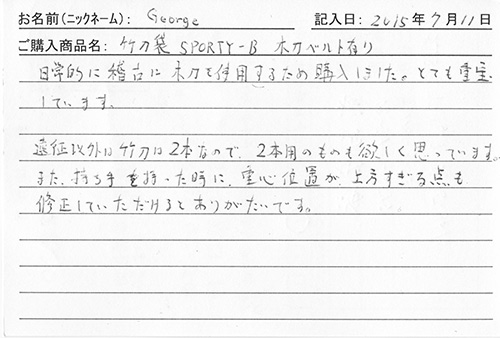 お名前(ニックネーム): George 記入日: 2015年7月11日
ご購入商品名: 竹刀袋 SPORTY-B 木刀ベルト有り
日常的に稽古に木刀を使用するため購入しました。とても重宝
しています。
遠征以外は竹刀は2本なので、2本用のものも欲しく思っています。
また、持ち手を持った時に、重心位置が上方すぎる点も
修正していただけるとありがたいです。